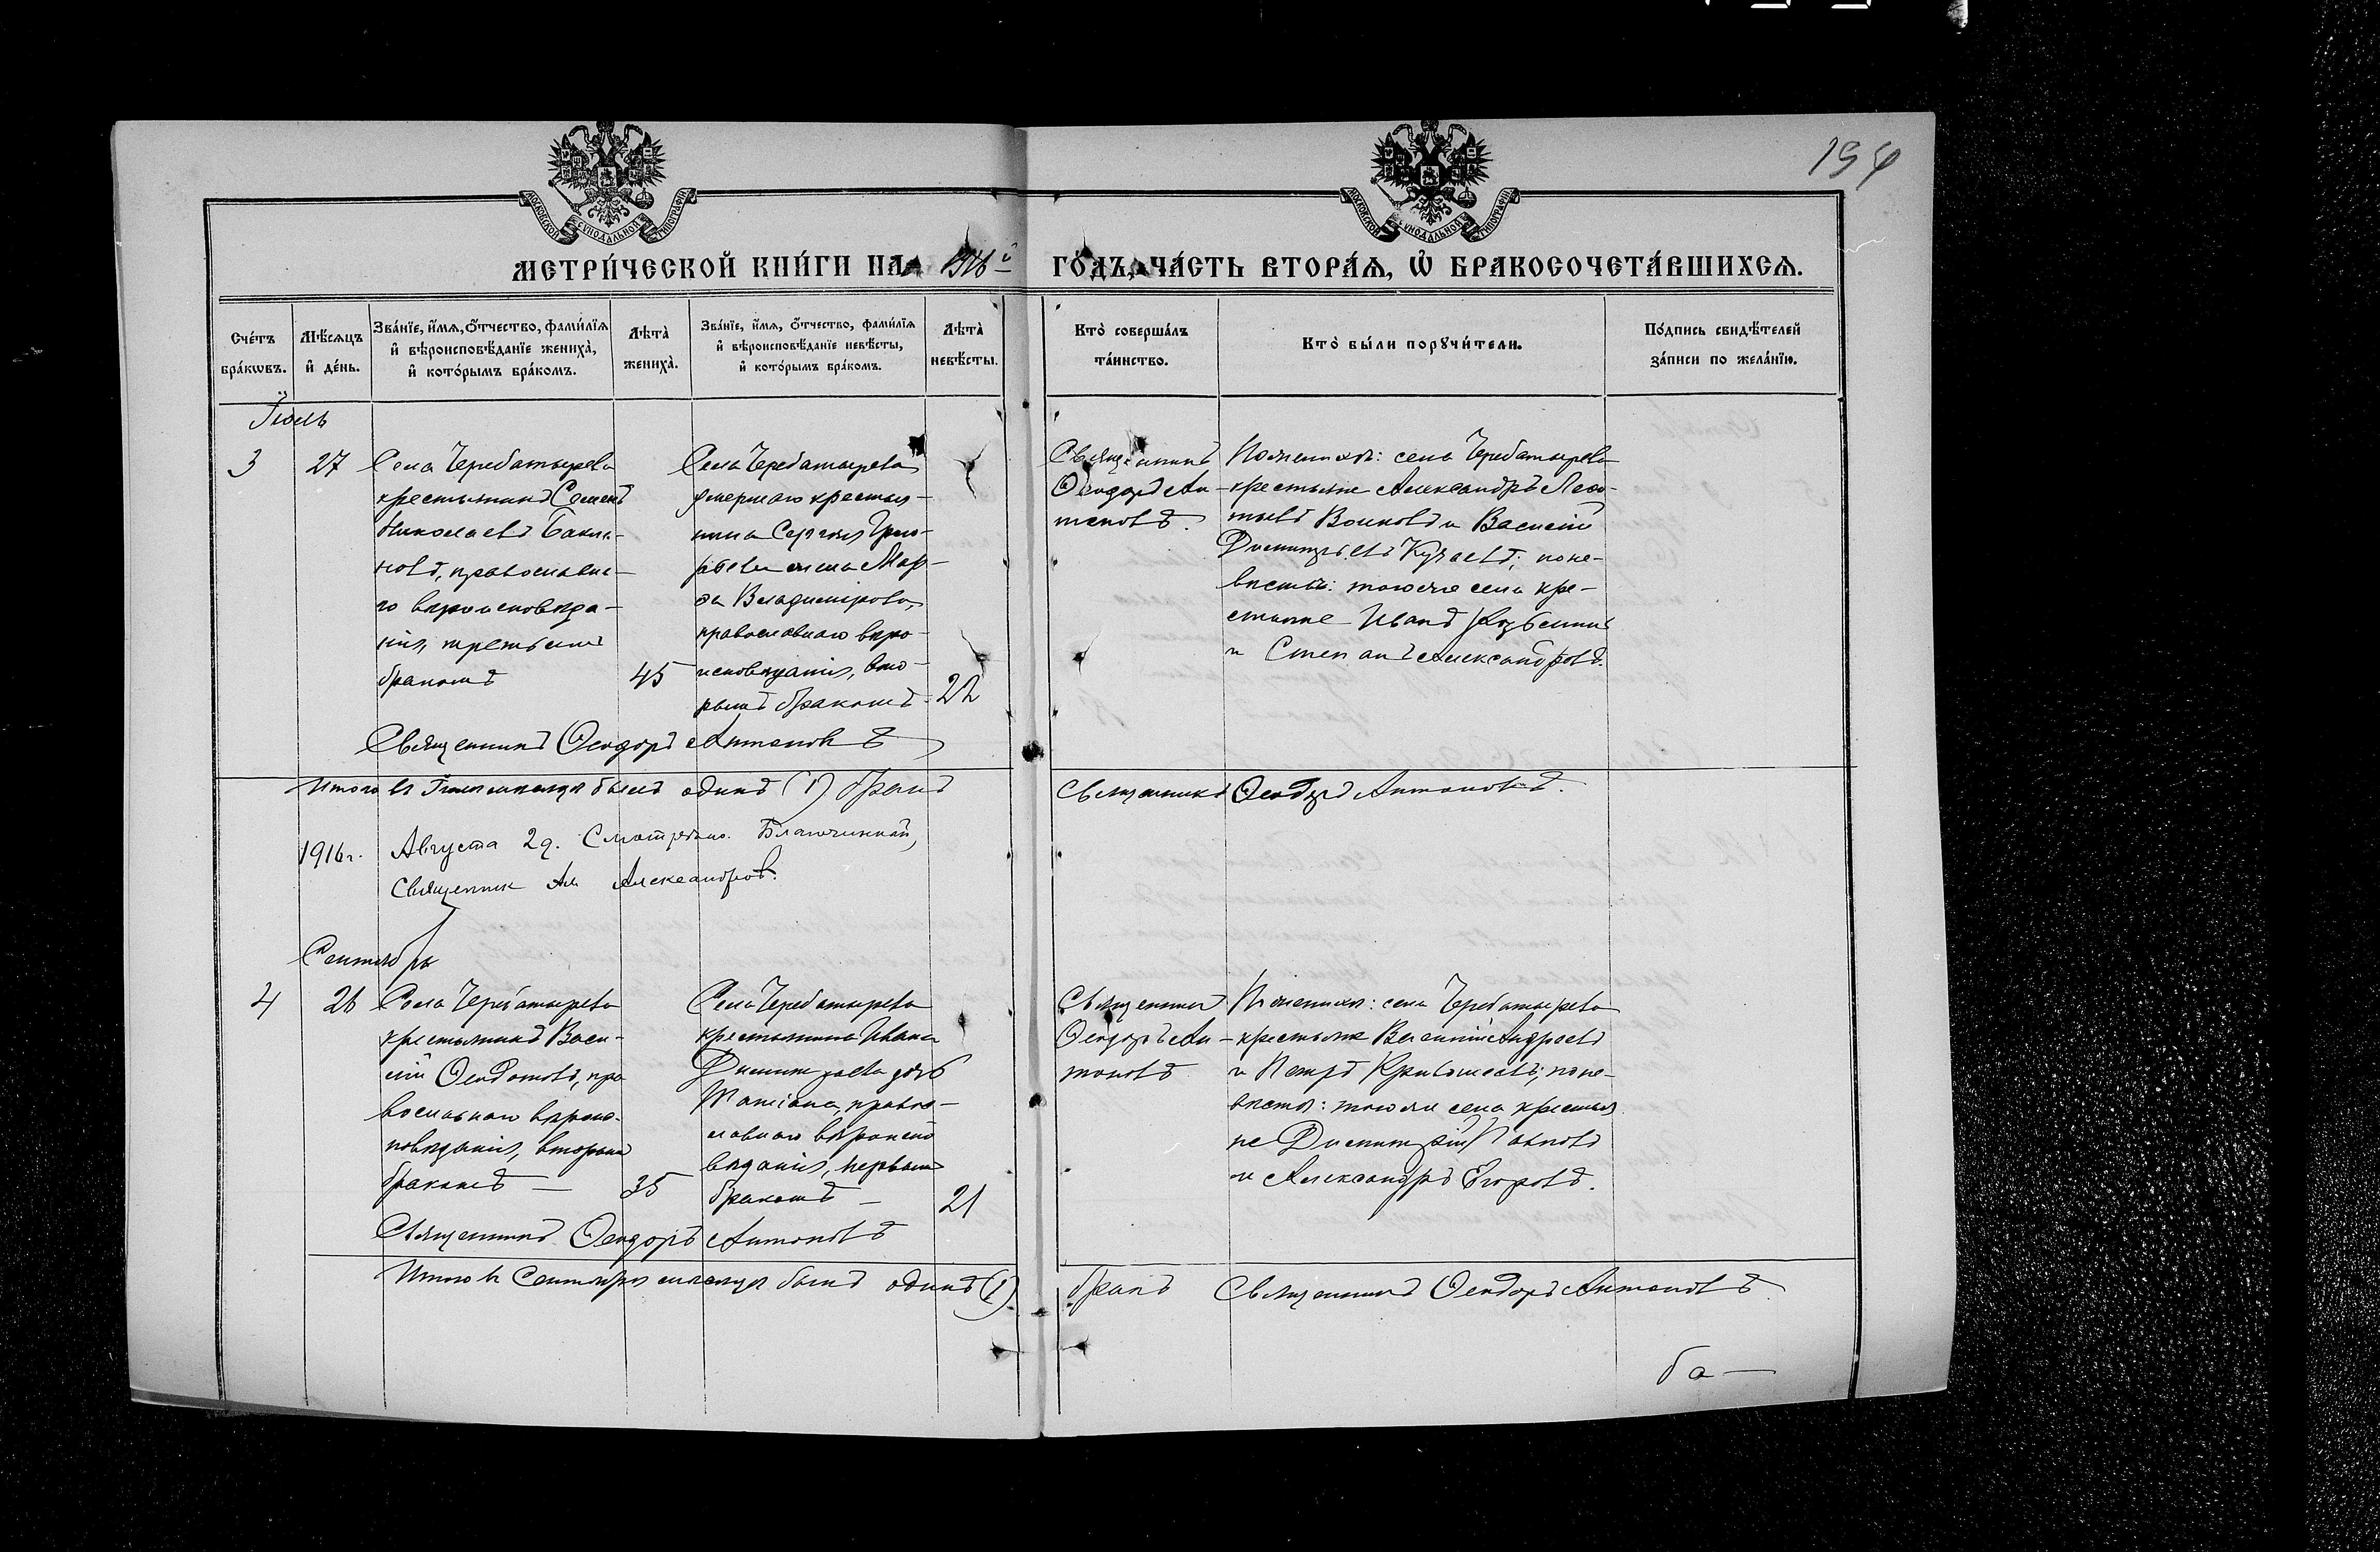 194
МОСКОВСКОЙ СѴНОДАЛЬНОЙ ТИПОГРАФІИ
МОСКОВСКОЙ СѴНОДАЛЬНОЙ ТИПОГРАФІИ
МЕТРИ́ЧЕСКОЙ КНИ́ГИ НА 1916й ГО́ДЪ, ЧА́СТЬ ВТОРА́Ѧ, Ѽ БРАКОСОЧЕТА́ВШИХСѦ.
Сче́тъ бра́кѡвъ.
Мѣ́сѧцъ и҆ де́нь.
Зва́нїе, и҆́мѧ, ѻ҆́тчество, фами́лїѧ и҆ вѣроисповѣ́данїе жениха̀, и҆ кото́рымъ бра́комъ.
Лѣта̀ жениха̀.
Зва́нїе, и҆́мѧ, ѻ҆́тчество, фами́лїѧ и҆ вѣроисповѣ́данїе невѣ́сты, и҆ кото́рымъ бра́комъ.
Лѣта̀ невѣ́сты.
Кто̀ соверша́лъ та́инство.
Кто̀ бы́ли порꙋчи́тели.
По́дпись свидѣ́телей за́писи по жела́нїю.
Іюль
3
27
Села Черебатырева
крестьянинъ Семенъ
Николаевъ Бакла-
новъ, православна-
го вѣроисповѣда-
нія, третьимъ
бракомъ
45
Села Черебатырева
умершаго крестья-
нина Сергія Григо-
рьева жена Мар-
ѳа Владимірова,
православнаго вѣро-
исповѣданія, вто-
рымъ бракомъ
22
Священникъ
Ѳеодоръ Ан-
тоновъ.
По женихѣ: села Черебатырева
крестьяне Александръ Леон-
тьевъ Волковъ и Василій
Димитріевъ Кучаевъ; по не-
вѣстѣ: того же села кре-
стьяне Иванъ Козьминъ
и Степанъ Александровъ.
Священникъ Ѳеодоръ Антоновъ
Итого въ Іюлѣ мѣсяцѣ былъ одинъ (1) бракъ
Священникъ Ѳеодоръ Антоновъ.
1916 г. Августа 2 д. Смотрѣно. Благочинный,
Священник Ал Александров.
Сентябрь
4
26
Села Черебатырева
крестьянинъ Васи-
лій Ѳеодотовъ, пра
вославнаго вѣроис-
повѣданія, вторымъ
бракомъ —
35
Села Черебатырева
крестьянина Ивана
Димитріева дочь
Татіана, право-
славнаго вѣроиспо
вѣданія, первымъ
бракомъ —
21
Священникъ
Ѳеодоръ Ан-
тоновъ
По женихѣ: села Черебатырева
крестьяне Василій Андреевъ
и Петръ Кривошеевъ; по не-
вѣстѣ: того же села крестья
не Димитрій Павловъ
и Александръ Егоровъ.
Священникъ Ѳеодоръ Антоновъ
Итого въ Сентябрѣ мѣсяцѣ былъ одинъ (1)
бракъ Священникъ Ѳеодоръ Антоновъ.
ба —